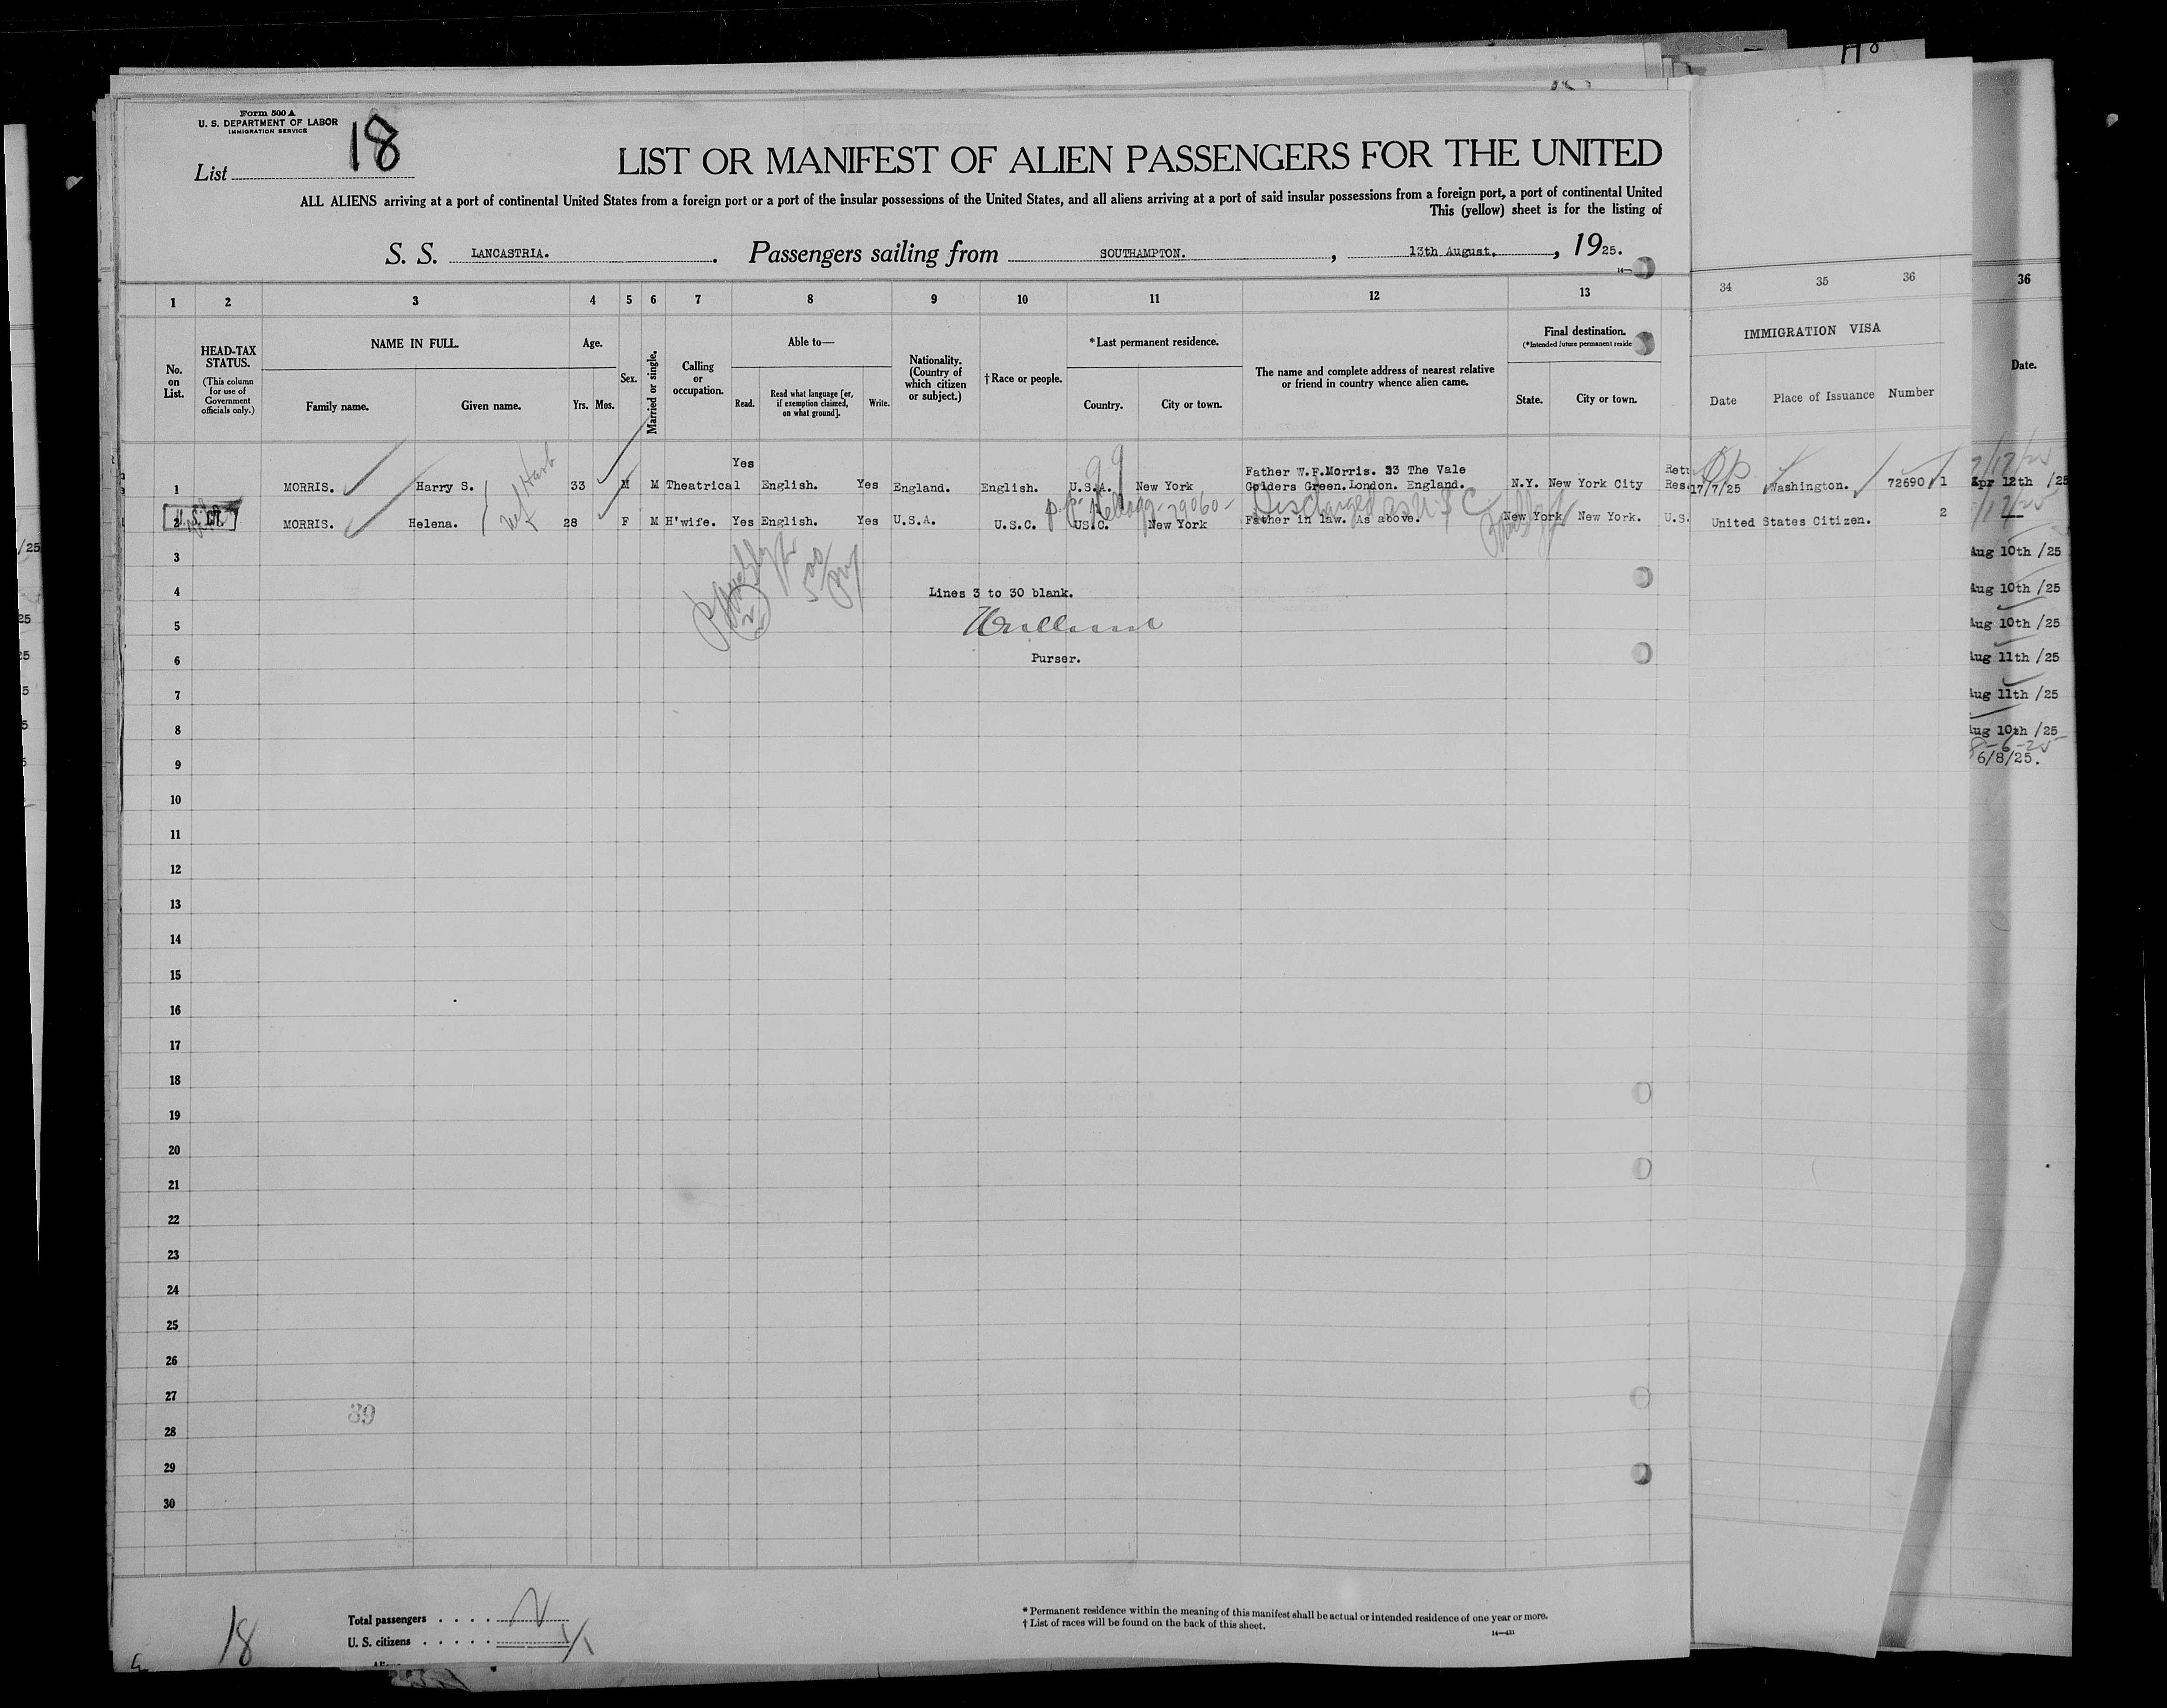 Form 500 A
U. S. DEPARTMENT OF LABOR
IMMIGRATION SERVICE
List 18
LIST OR MANIFEST OF ALIEN PASSENGERS FOR THE UNITED
ALL ALIENS arriving at a port of continental United States from a foreign port or a port of the insular possessions of the United States, and all aliens arriving at a port of said insular possessions from a foreign port, a port of continental United
This (yellow) sheet is for the listing of
S. S. LANCASTRIA. Passengers sailing from SOUTHAMPTON. , 13th August. , 1925.
1 2 3 4 5 6 7 8 9 10 11 12 13 34 35 36 36
No. on List.
HEAD-TAX STATUS.
(This column for use of Government officials only.)
NAME IN FULL.
Family name. Given name.
Age.
Yrs. Mos.
Sex.
Married or single.
Calling or occupation.
Able to—
Read. Read what language [or, if exemption claimed, on what ground]. Write.
Nationality. (Country of which citizen or subject.)
†Race or people.
*Last permanent residence.
Country. City or town.
The name and complete address of nearest relative or friend in country whence alien came.
Final destination.
(*Intended future permanent reside
State. City or town.
IMMIGRATION VISA
Date Place of Issuance Number
Date.
1 MORRIS. Harry S. 33 M M Theatrical Yes English. Yes England. English. U.S.A. New York Father W.F.Morris. 33 The Vale Golders Green.London. England. N.Y. New York City Ret Res. 17/7/25 Washington. 72690 1 Apr 12th /25
2 MORRIS. Helena. 28 F M H'wife. Yes English. Yes U.S.A. U.S.C. USC. New York Father in law. As above. New York New York. U.S. United States Citizen. 2
Discharged as U S C
29060
3 Aug 10th /25
4 Lines 3 to 30 blank. Aug 10th /25
5 Aug 10th /25
6 Purser. Aug 11th /25
7 Aug 11th /25
8 Aug 10th /25
8-6-25
9 6/8/25.
10
11
12
13
14
15
16
17
18
19
20
21
22
23
24
25
26
27
39
28
29
30
18
Total passengers . . . .
U. S. citizens . . . . .
* Permanent residence within the meaning of this manifest shall be actual or intended residence of one year or more.
† List of races will be found on the back of this sheet.